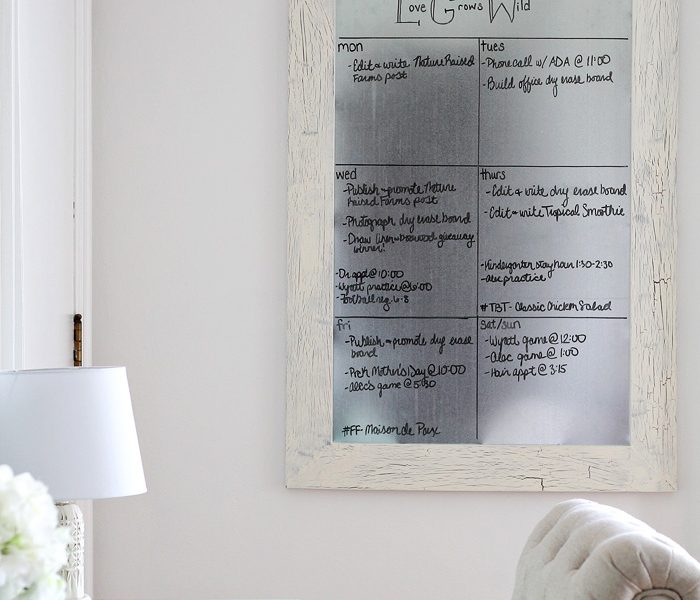 Love Grows Wild
mon
- Edit & write Nature Raised
Farms post
tues
- Phone call w/ ADA @ 11:00
- Build office dry erase board
wed
- Publish & promote Nature
Raised Farms post
- Photograph dry erase board
- Draw Linen & giveaway
winner!
- Dr appt @ 10:00
- Wyatt practice @ 6:00
- Football reg 6-8
thurs
- Edit & write dry erase board
- Edit & write Tropical Smoothie
- Kindergarten stay hour 1:30-2:30
- alec practice
#TBT- Classic Chicken Salad
fri
- Publish & promote dry erase
board
- PreK Mother's Day @ 10:00
- Alec's game @ 5:30
#FF- Maison de Pax
sat/sun
- Wyatt game @ 12:00
- Alec game @ 1:00
- Hair appt @ 3:15